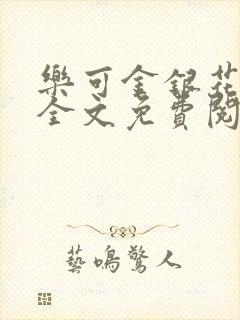 樂可金銀花
全文免費閱
藝鳴驚人